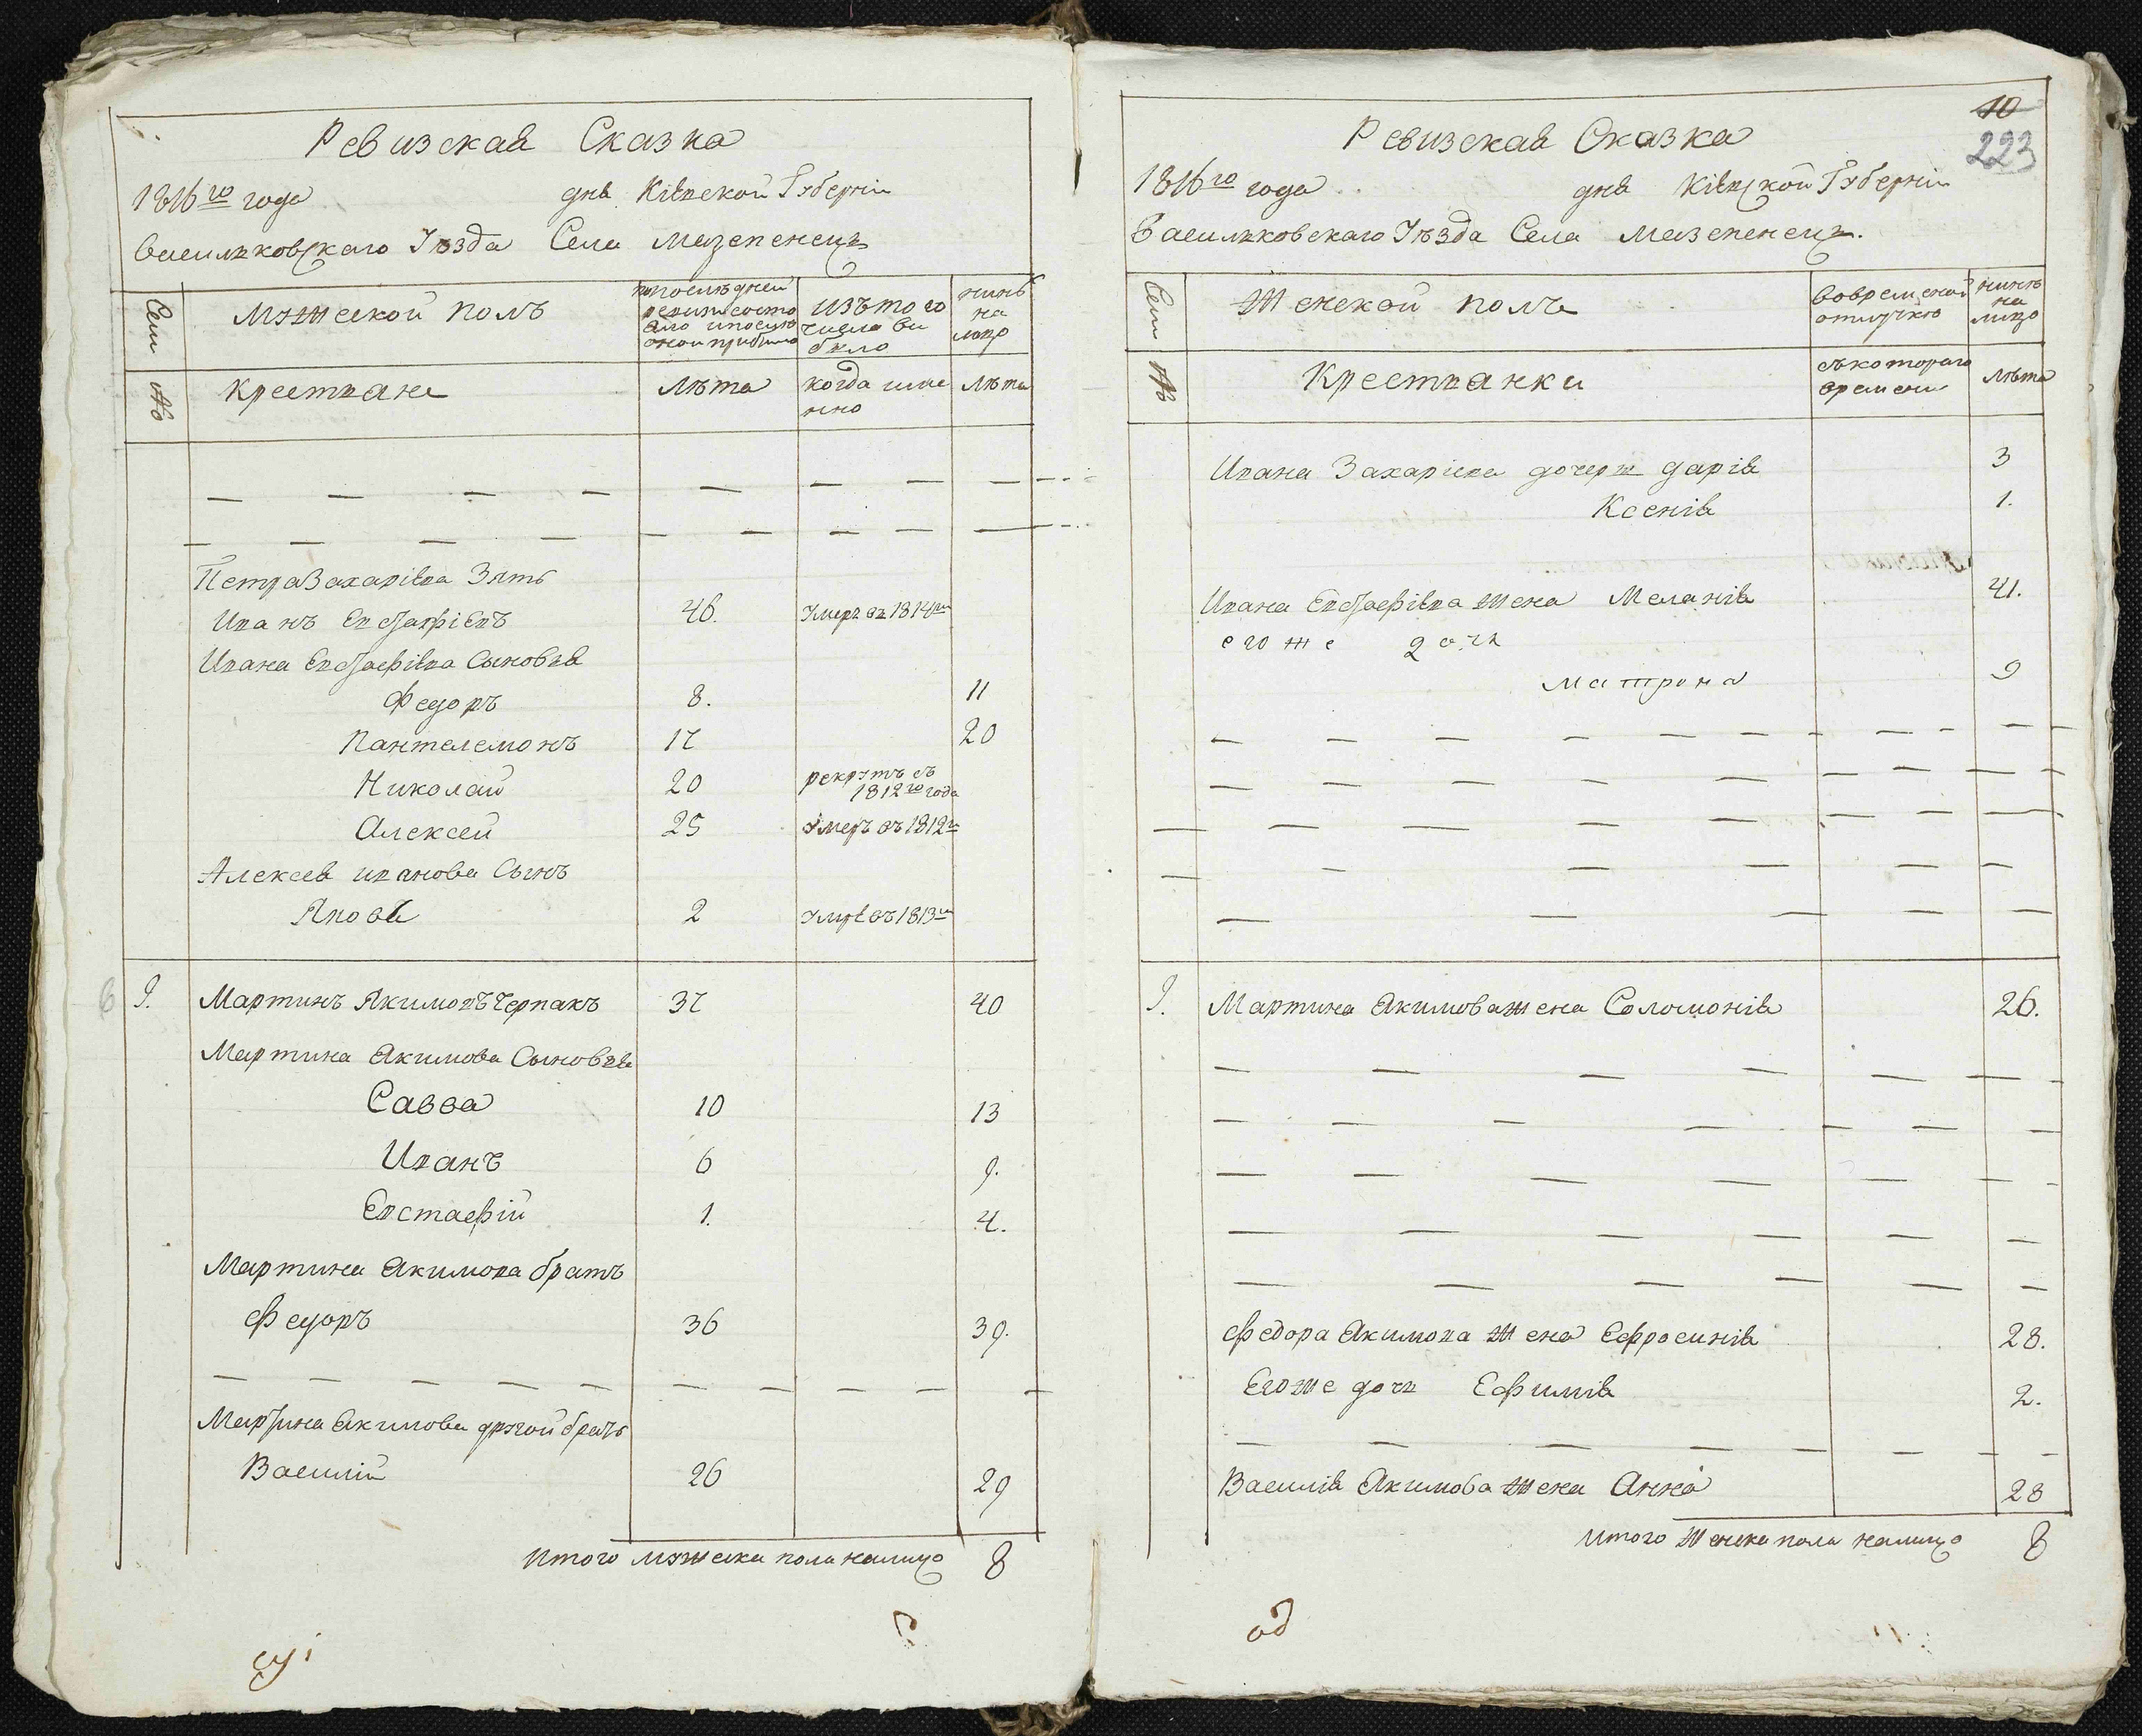 Ревизская Сказка
1816го года дня Кіевской Губерніи
Васильковскаго Уѣзда Села Мазепенецъ
Семи №
Мужеской полъ
изъ того числа выбыло
нынѣ на лицо
крестьяне
Лѣта
когда именно
Лѣта
Петра Захаріева Зять
Иванъ Евстафіевъ 46. умеръ въ 1814м
Ивана Евстафіева Сыновья
Федоръ 8. 11
Пантелемонъ 17 20
Николай 20 рекрутъ съ 1812го года
Алексей 25 умеръ въ 1812м
Алексея иванова Сынъ
Яковъ 2 умре въ 1813м
9. Мартинъ Якимовъ Черпакъ 37 40
Мартина Якимова Сыновья
Савва 10 13
Иванъ 6 9.
Евстафій 1. 4.
Мартина Якимова братъ
Федоръ 36 39.
Мартина Якимова другой братъ
Василій 26 29
Итого мужеска пола налицо 8
10
223
Ревизская Сказка
1816го года дня Кіевской Губерніи
Васильковскаго Уѣзда Села Мазепенецъ.
Семи №
Женской полъ
Вовременной отлучкѣ
нинѣ на лицо
Крестьянки
съ котораго времени
лѣта
Ивана Захаріева дочерь дарія 3
Ксенія 1.
Ивана Евстафіева жена Меланія 41.
его же дочь
Матрона 9
9. Мартина Якимова жена Соломонія 26.
Федора Якимова жена Ефросинія 28.
Его же дочь Ефимія 2.
Василія Якимова жена Анна 28
Итого женска пола налицо 8